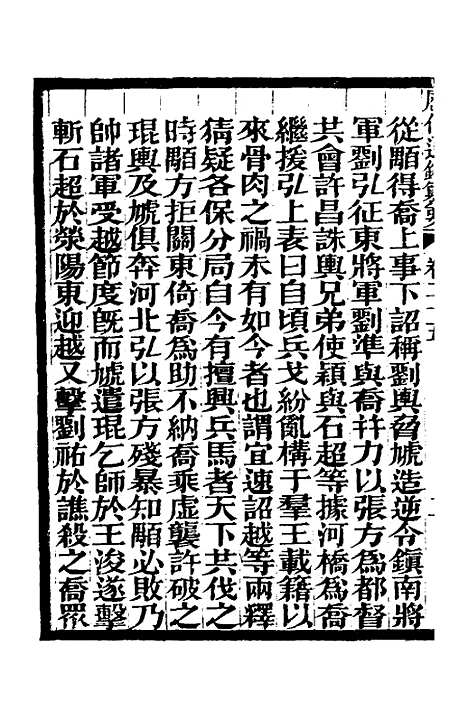 從顒得喬上事下詔稱劉輿脅虓造逆令鎮南將
軍劉弘征東將軍劉準與喬幷力以張方爲都督
共會許昌誅輿兄弟使穎與石超等據河橋爲喬
繼援弘上表曰自頃兵戈紛亂構于羣王載籍以
來骨肉之禍未有如今者也謂宜速詔越等兩釋
猜疑各保分局自今有擅興兵馬者天下共伐之
時顒方拒關東倚喬爲助不納喬乘虛襲許破之
琨輿及虓俱奔河北弘以張方殘暴知顒必敗乃
帥諸軍受越節度旣而虓遣琨乞師於王浚遂擊
斬石超於滎陽東迎越又擊劉祐於譙殺之喬眾